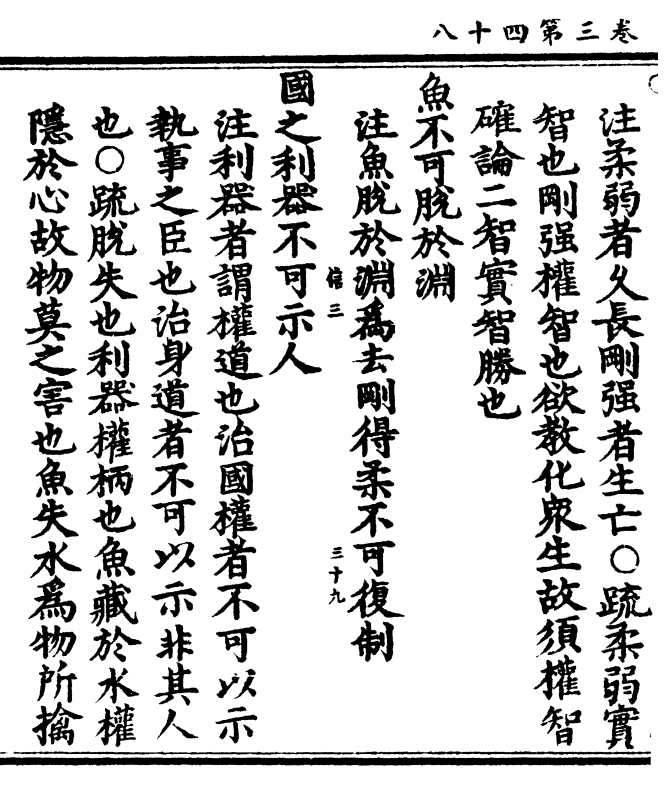 八十四第三卷
注柔弱者久長剛强者生亡〇疏柔弱實
智也剛强權智也欲教化衆生故須權智
確論二智實智勝也
魚不可脫於淵
注魚脫於淵爲去剛得柔不可復制
信三
三十九
國之利器不可示人
注利器者謂權道也治國權者不可以示
執事之臣也治身道者不可以示非其人
也〇疏脫失也利器權柄也魚藏於水權
隱於心故物莫之害也魚失水爲物所擒